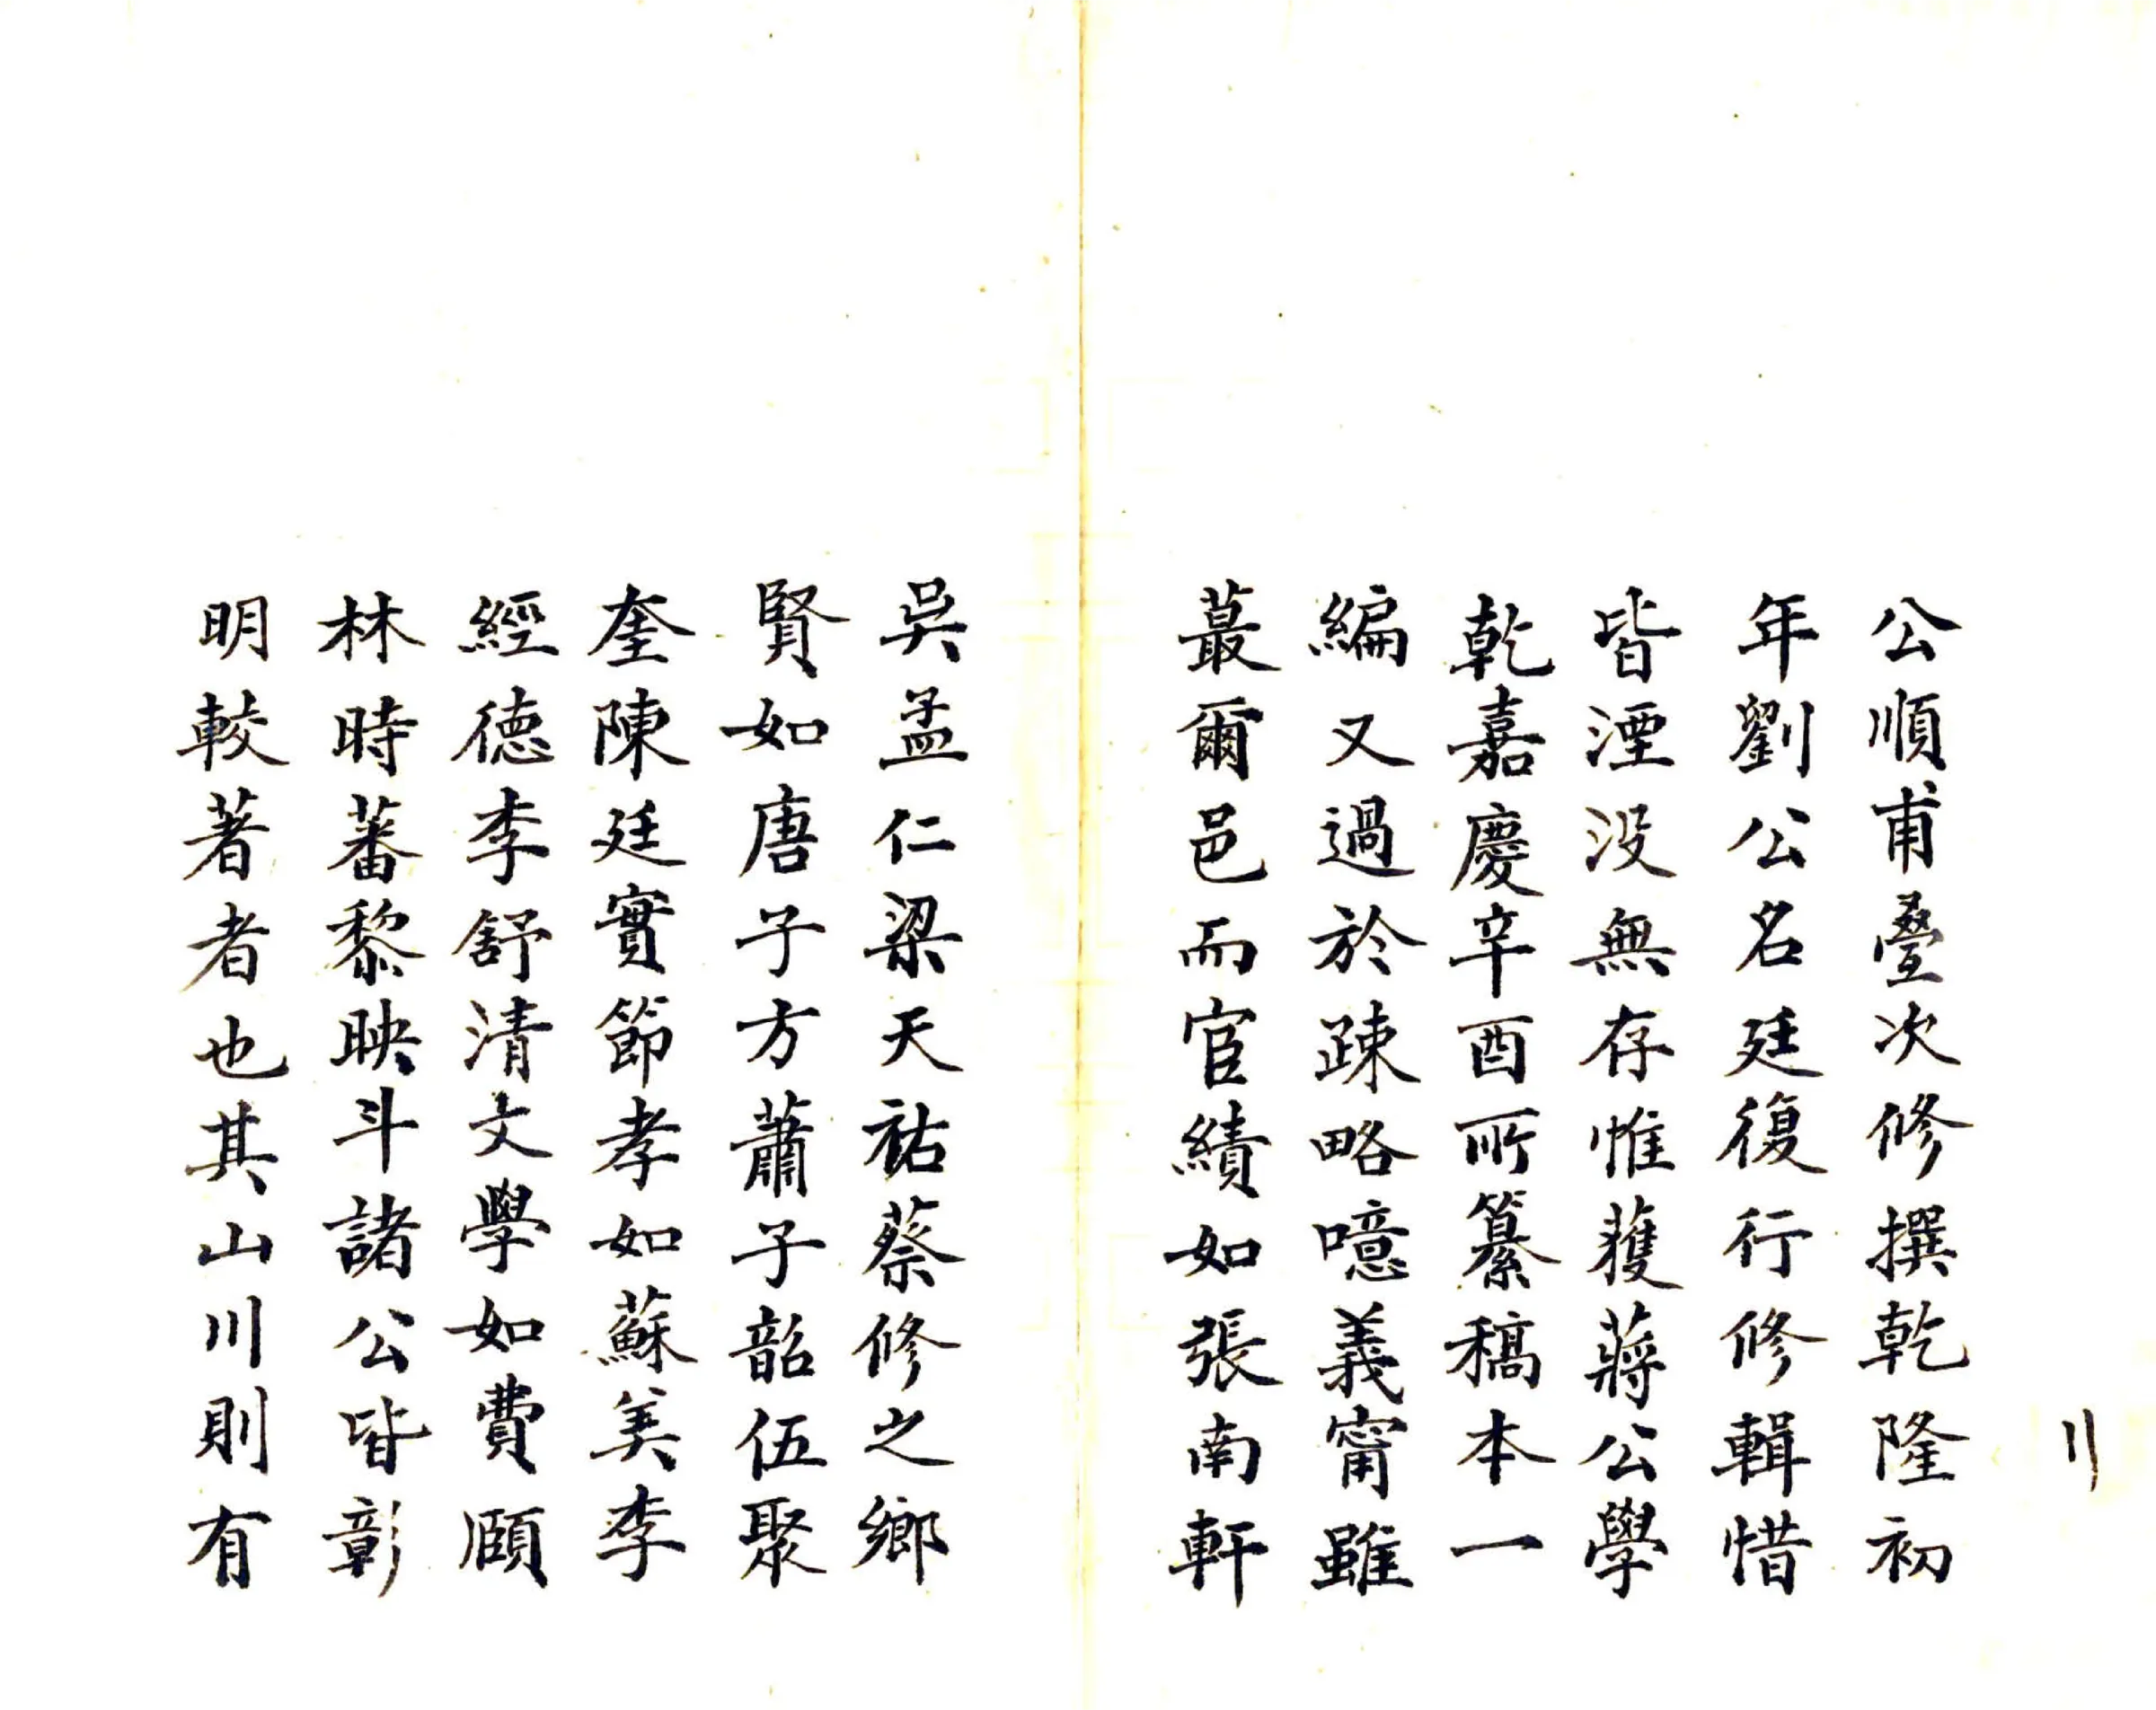 公順甫疊次修撰乾隆初
年劉公名廷復行修輯惜
皆湮没無存惟獲蔣公學
乾嘉慶辛酉所纂稿本一
編又過於疎略噫義甯雖
蕞爾邑而官績如張南軒
吳孟仁梁天祐蔡修之鄉
賢如唐子方蕭子韶伍聚
奎陳廷實節孝如蘇美李
經德李舒清文學如費頤
林時蕃黎映斗諸公皆彰
明較著者也其山川則有